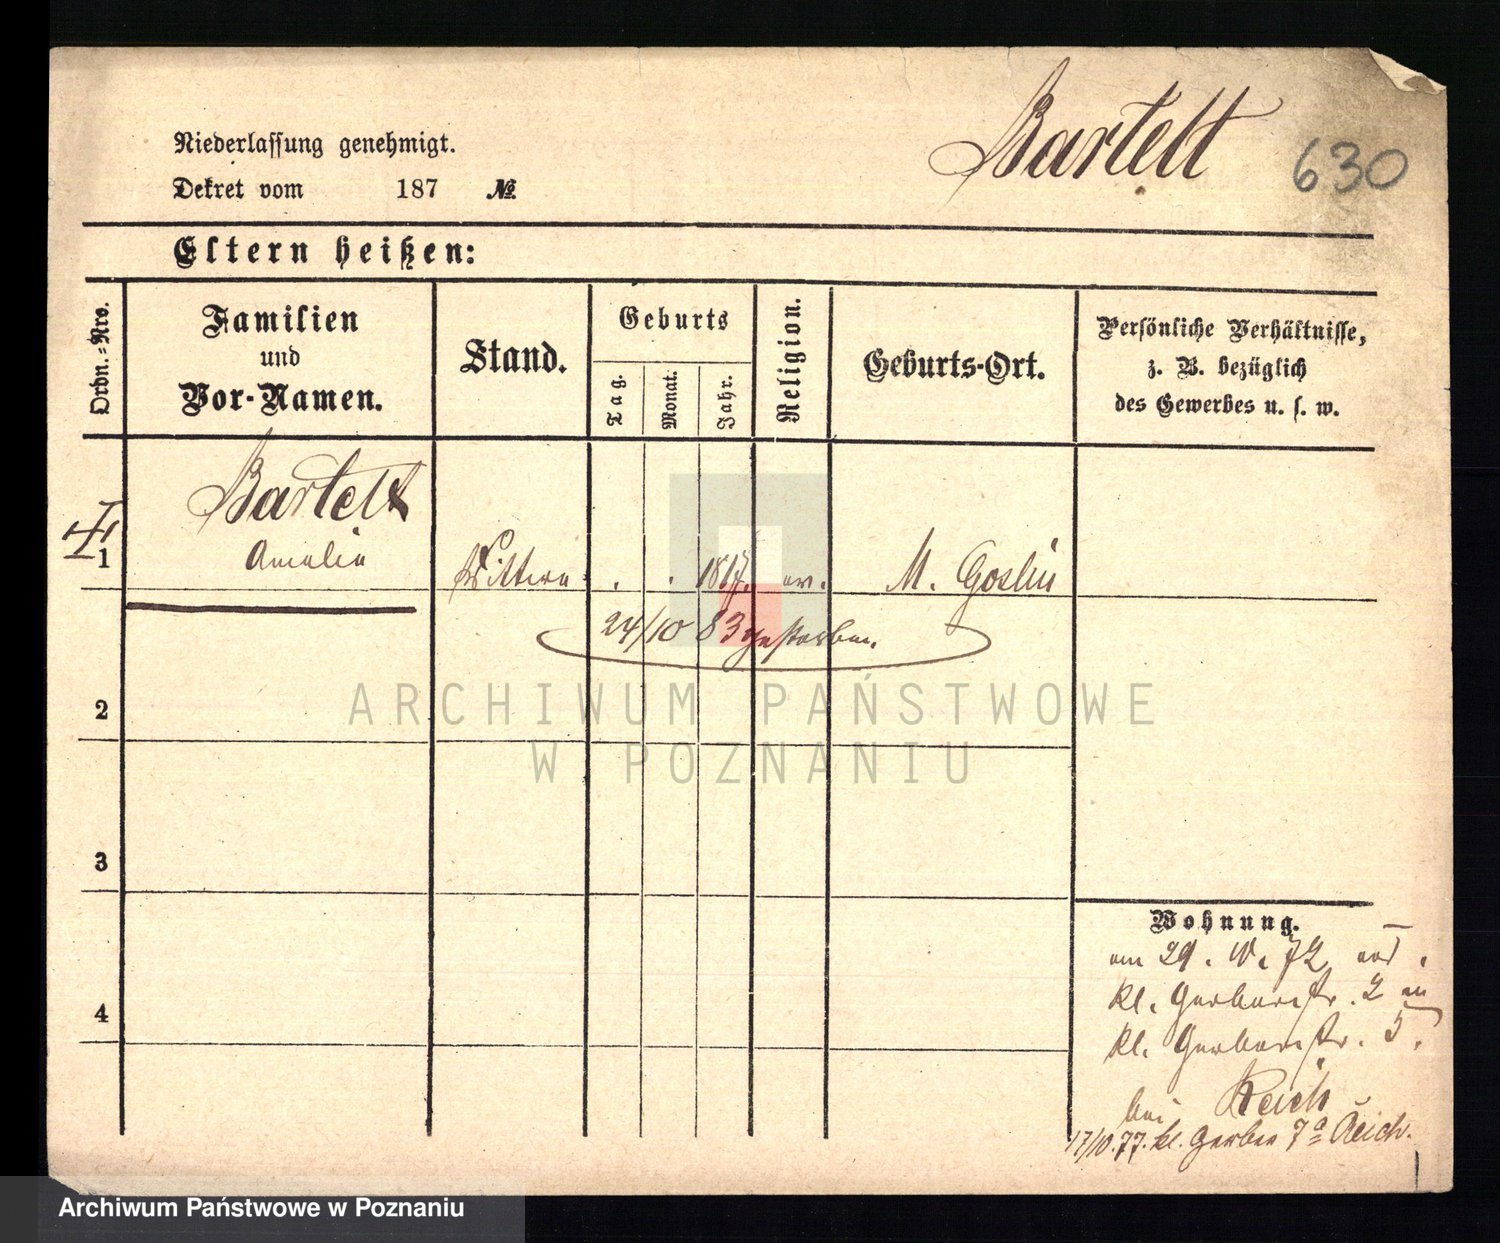 Bartelt
630
Niederlassung genehmigt.
Dekret vom 187 №
Eltern heißen:
Ordn.-Nro.
Familien
und
Vor-Namen.
Stand.
Geburts
Tag.
Monat.
Jahr.
Religion.
Geburts-Ort.
Persönliche Verhältnisse,
z. B. bezüglich
des Gewerbes u. s. w.
1
Bartelt
Amalie
Wittwe . . 1817. ev. M. Goslin
24/10 83 gestorben.
2
3
4
ARCHIWUM PAŃSTWOWE
W POZNANIU
Wohnung.
am 29. 10. 72
kl. Gerberstr. 2
kl. Gerberstr. 5.
bei Reich
17/10.77. kl. Gerber 7a Reich.
Archiwum Państwowe w Poznaniu